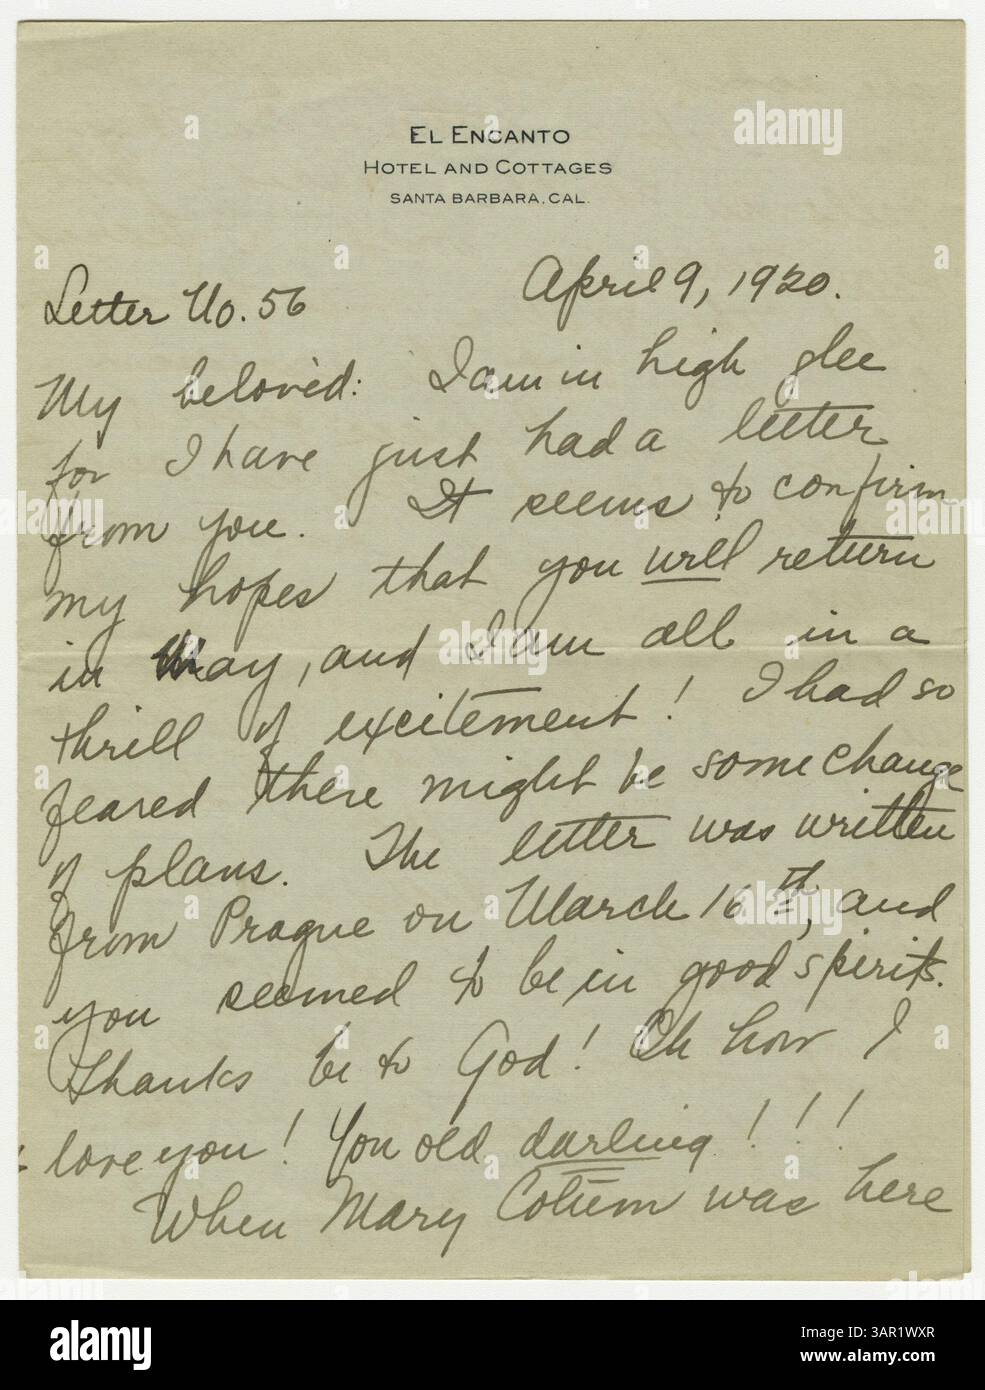 EL ENCANTO
HOTEL AND COTTAGES
SANTA BARBARA, CAL.
Letter No. 56
April 9, 1920.
My beloved: I am in high glee
for I have just had a letter
from you. It seems to confirm
my hopes that you will return
in May, and I am all in a
thrill of excitement! I had so
feared there might be some change
of plans. The letter was written
from Prague on March 16th, and
you seemed to be in good spirits.
Thanks be to God! Oh how I
love you! You old darling!!!
When Mary was here
alamy
Image ID: 3AR1WXR
www.alamy.com